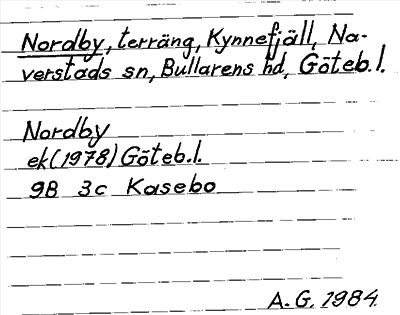 Nordby, terräng, Kynnefjäll, Na-
verstads sn, Bullarens hd, Göteb.l.
Nordby
ek(1978) Göteb.l.
9B 3c Kasebo
A.G. 1984